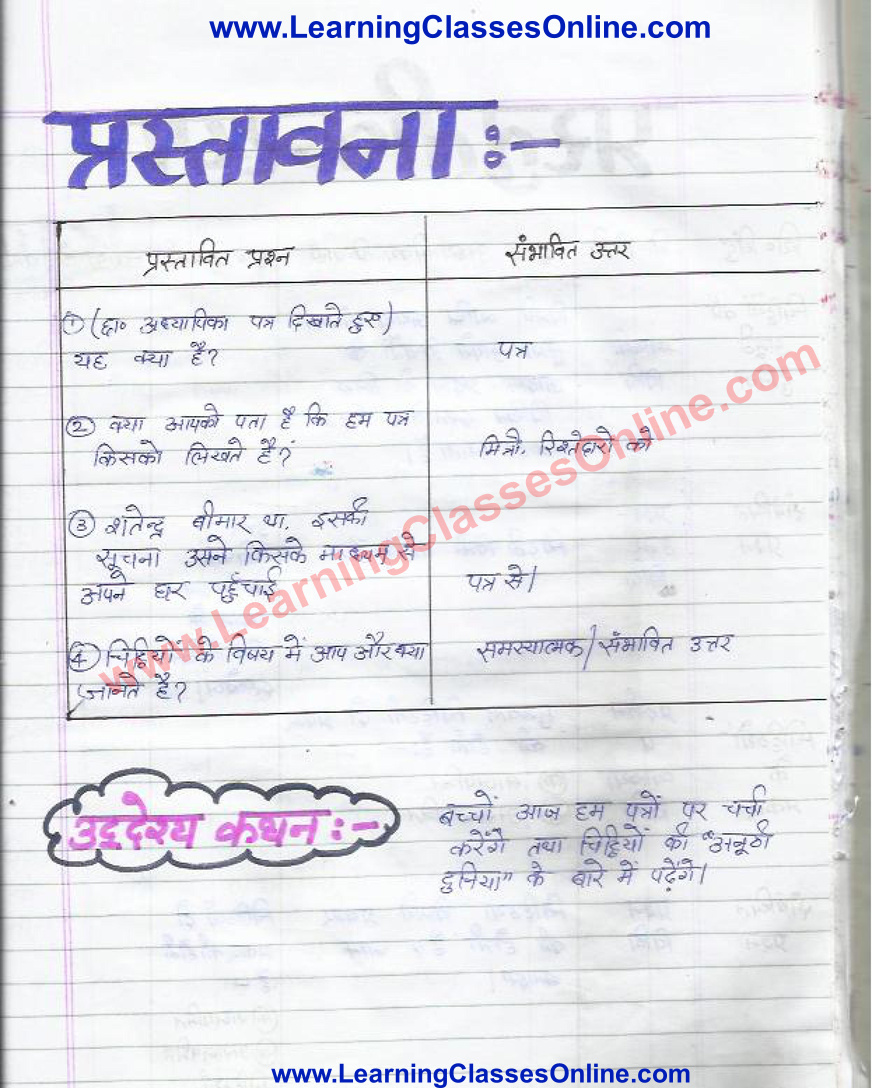 www.LearningClassesOnline.com
प्रस्तावना :-
प्रस्तावित प्रश्न
संभावित उत्तर
① (छा० अध्यापिका पत्र दिखाते हुए)
यह क्या है?
पत्र
② क्या आपको पता है कि हम पत्र
किसको लिखते है?
मित्रो, रिश्तेदारो को
③ शतेन्द्र बीमार था, इसकी
सूचना उसने किसके माध्यम से
अपने घर पहुँचाई
पत्र से।
④ चिट्ठियों के विषय में आप और क्या
जानते है?
समस्यात्मक/संभावित उत्तर
www.LearningClassesOnline.com
उद्देश्य कथन :-
बच्चों आज हम पत्रों पर चर्चा
करेंगे तथा चिट्ठियों की "अनूठी
दुनिया" के बारे में पढ़ेंगे।
www.LearningClassesOnline.com